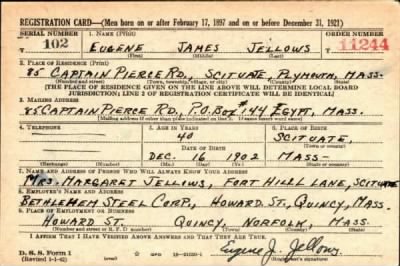 REGISTRATION CARD—(Men born on or after February 17, 1897 and on or before December 31, 1921)
SERIAL NUMBER 1. NAME (Print) ORDER NUMBER
102 EUGENE JAMES JELLOWS 11244
(First) (Middle) (Last)
2. PLACE OF RESIDENCE (Print)
85 CAPTAIN PIERCE RD., SCITUATE, PLYMOUTH, MASS.
[THE PLACE OF RESIDENCE GIVEN ON THE LINE ABOVE WILL DETERMINE LOCAL BOARD
JURISDICTION; LINE 2 OF REGISTRATION CERTIFICATE WILL BE IDENTICAL]
3. MAILING ADDRESS
85 CAPTAIN PIERCE RD., P.O. BOX #144 EGYPT, MASS.
[Mailing address if other than place indicated on line 2. If same insert word same]
4. TELEPHONE 5. AGE IN YEARS 6. PLACE OF BIRTH
40 SCITUATE,
DATE OF BIRTH
DEC. 16 1902 MASS—
7. NAME AND ADDRESS OF PERSON WHO WILL ALWAYS KNOW YOUR ADDRESS
MRS. MARGARET JELLOWS, FORT HILL LANE, SCITUATE
8. EMPLOYER'S NAME AND ADDRESS
BETHLEHEM STEEL CORP., HOWARD ST., QUINCY, MASS.
9. PLACE OF EMPLOYMENT OR BUSINESS
HOWARD ST. QUINCY, NORFOLK, MASS
(Number and street or R. F. D. number) (Town) (County) (State)
I AFFIRM THAT I HAVE VERIFIED ABOVE ANSWERS AND THAT THEY ARE TRUE.
D. S. S. Form 1
(Revised 1-1-42) GPO 16-21630-1 Eugene J. Jellows